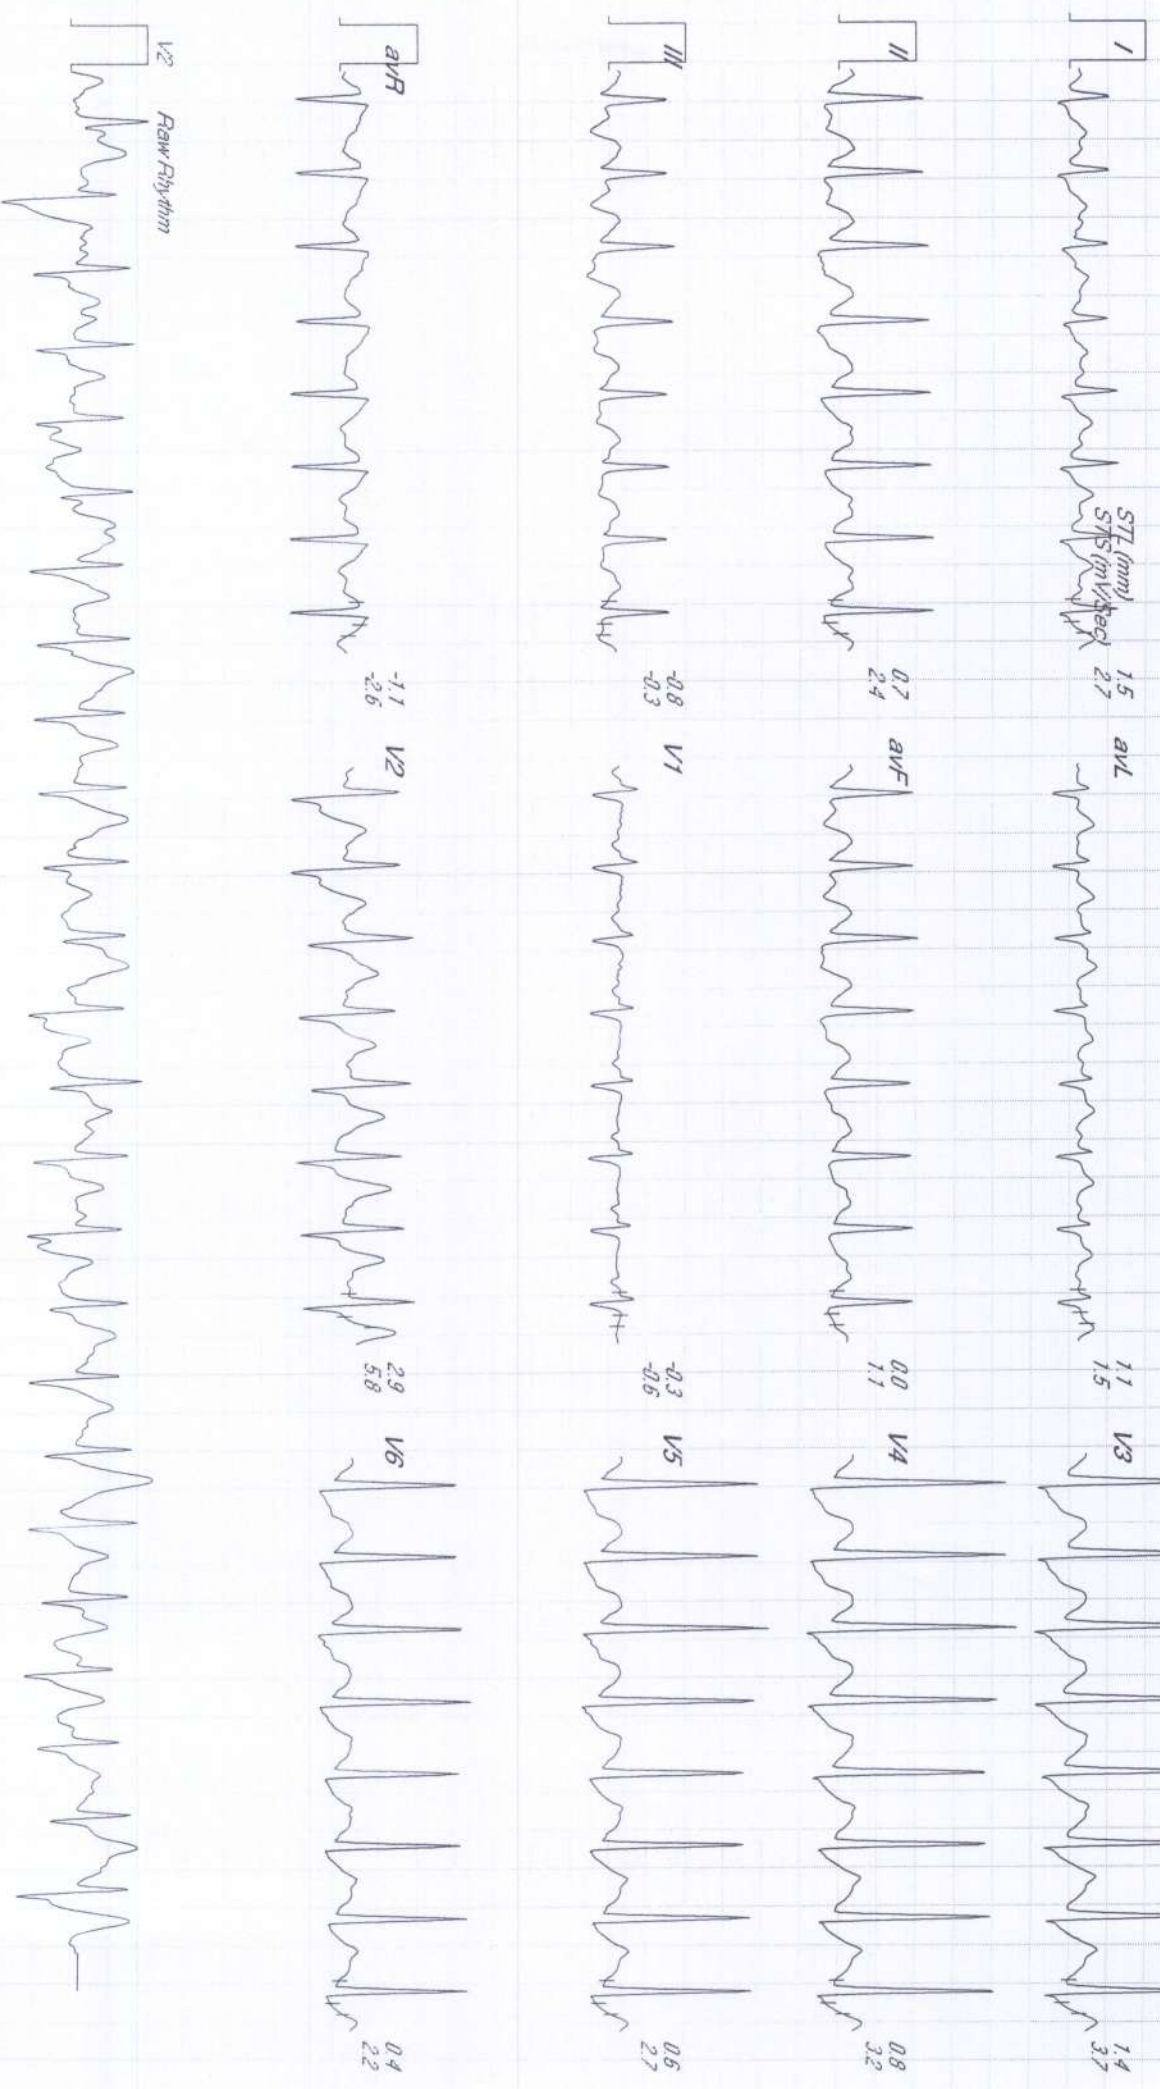 I
STL (mm) 1.5
STS (mV/Sec) 2.7
avL
1.1
1.5
V3
1.4
3.7
II
0.7
2.4
avF
0.0
1.1
V4
0.8
3.2
III
-0.8
-0.3
V1
-0.3
-0.6
V5
0.6
2.7
avR
-1.1
-2.6
V2
2.9
5.8
V6
0.4
2.2
V2 Raw Rhythm